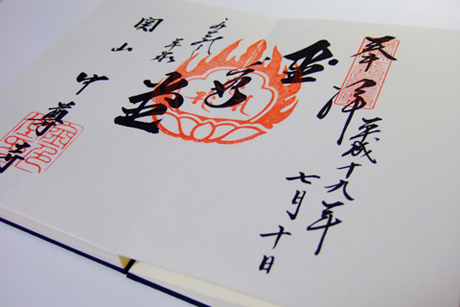 奉拝
平成十九年
七月十日
金色堂
平泉
関山
中尊寺